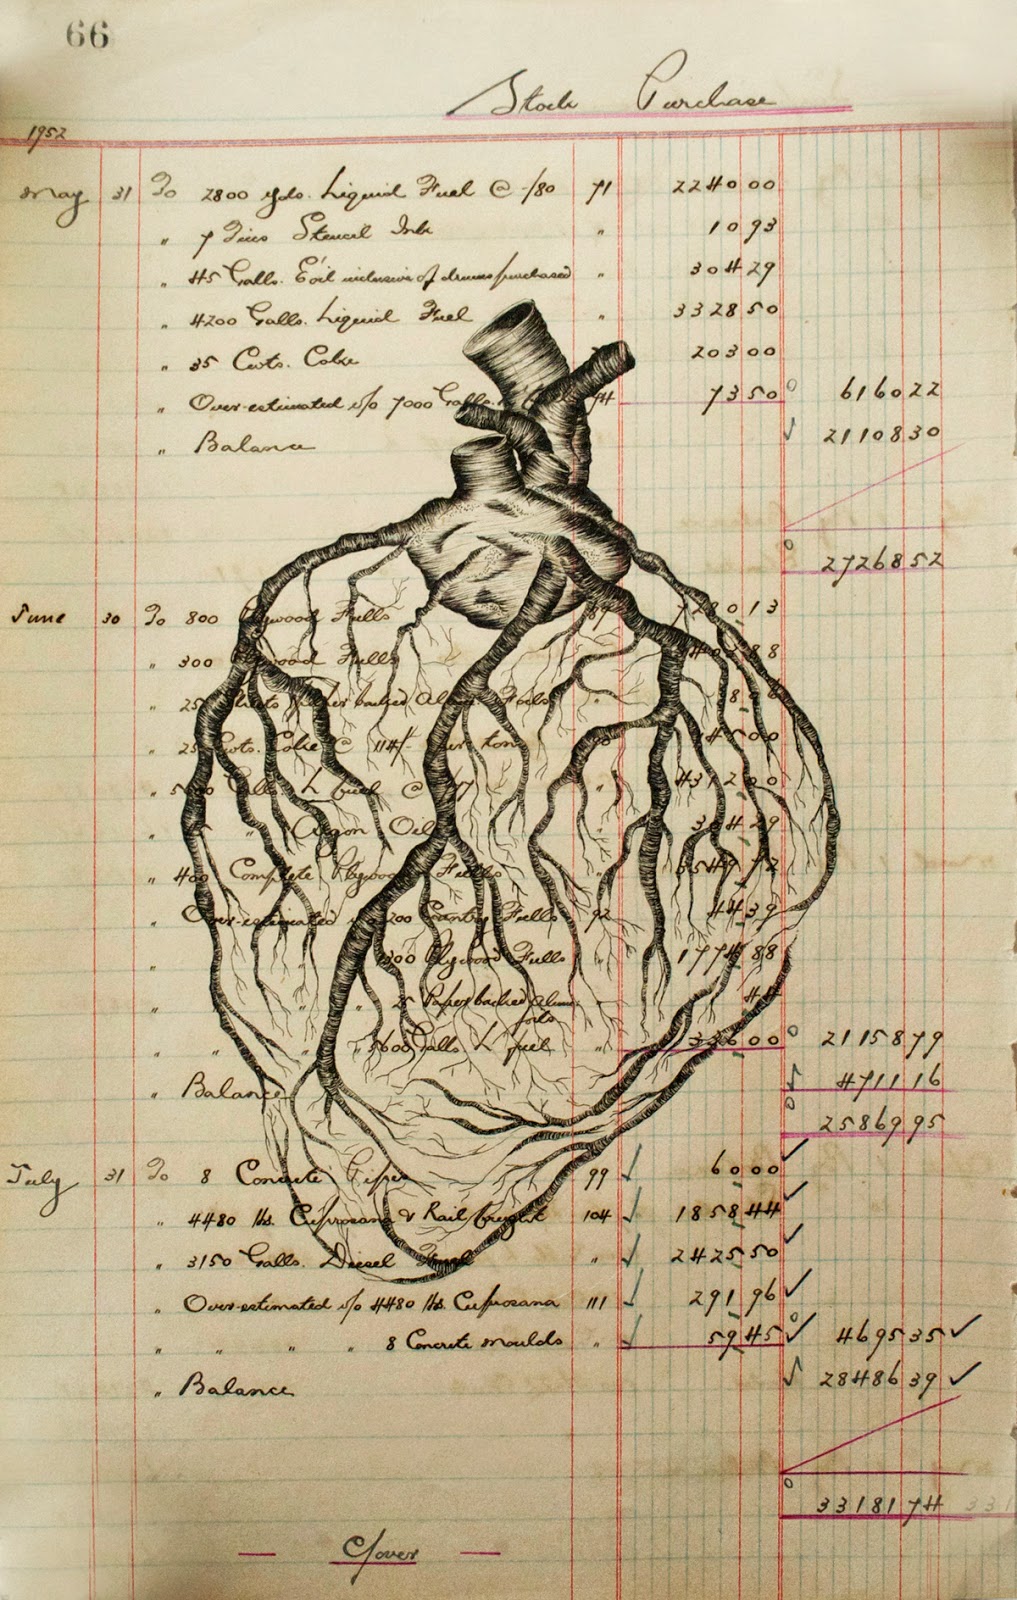 66
Stock Purchase
1952
May 31 To 2800 glds. Liquid Fuel @ -/80 71 2240 00
" 7 Tins Stencil Ink " 10 93
" 45 Galls. E'oil inclusive of drums purchased " 304 29
" 4200 Galls. Liquid Fuel " 3328 50
" 35 Cwts. Coke 203 00
" Over-estimated i/o 7000 Galls. 73 50 6160 22
" Balance 21108 30
27268 52
June 30 To 800 Plywood Fulls 13
" 300 Plywood Fulls 88
" 25 backed Foils
" 25 Cwts. Coke @ 114/- per ton 00
" Galls. L fuel @ 4312 00
" " Argon Oil 304 29
" 400 Complete Plywood Fulls 72
" Over-estimated 200 Fulls 92 44 39
" 300 Plywood Fulls " 1774 88
" " 25 Paper backed Alum foils
" " " " 5600 Galls L fuel " 336 00 21158 79
" Balance 4711 16
25869 95
July 31 To 8 Concrete Pipes 99 60 00
" 4480 lbs. Cuprosana & Rail freight 104 1858 44
" 3150 Galls. Diesel Fuel " 2425 50
" Over-estimated i/o 4480 lbs. Cuprosana 111 291 96
" " " " 8 Concrete moulds " 59 45 4695 35
" Balance 28486 39
33181 74
C/over